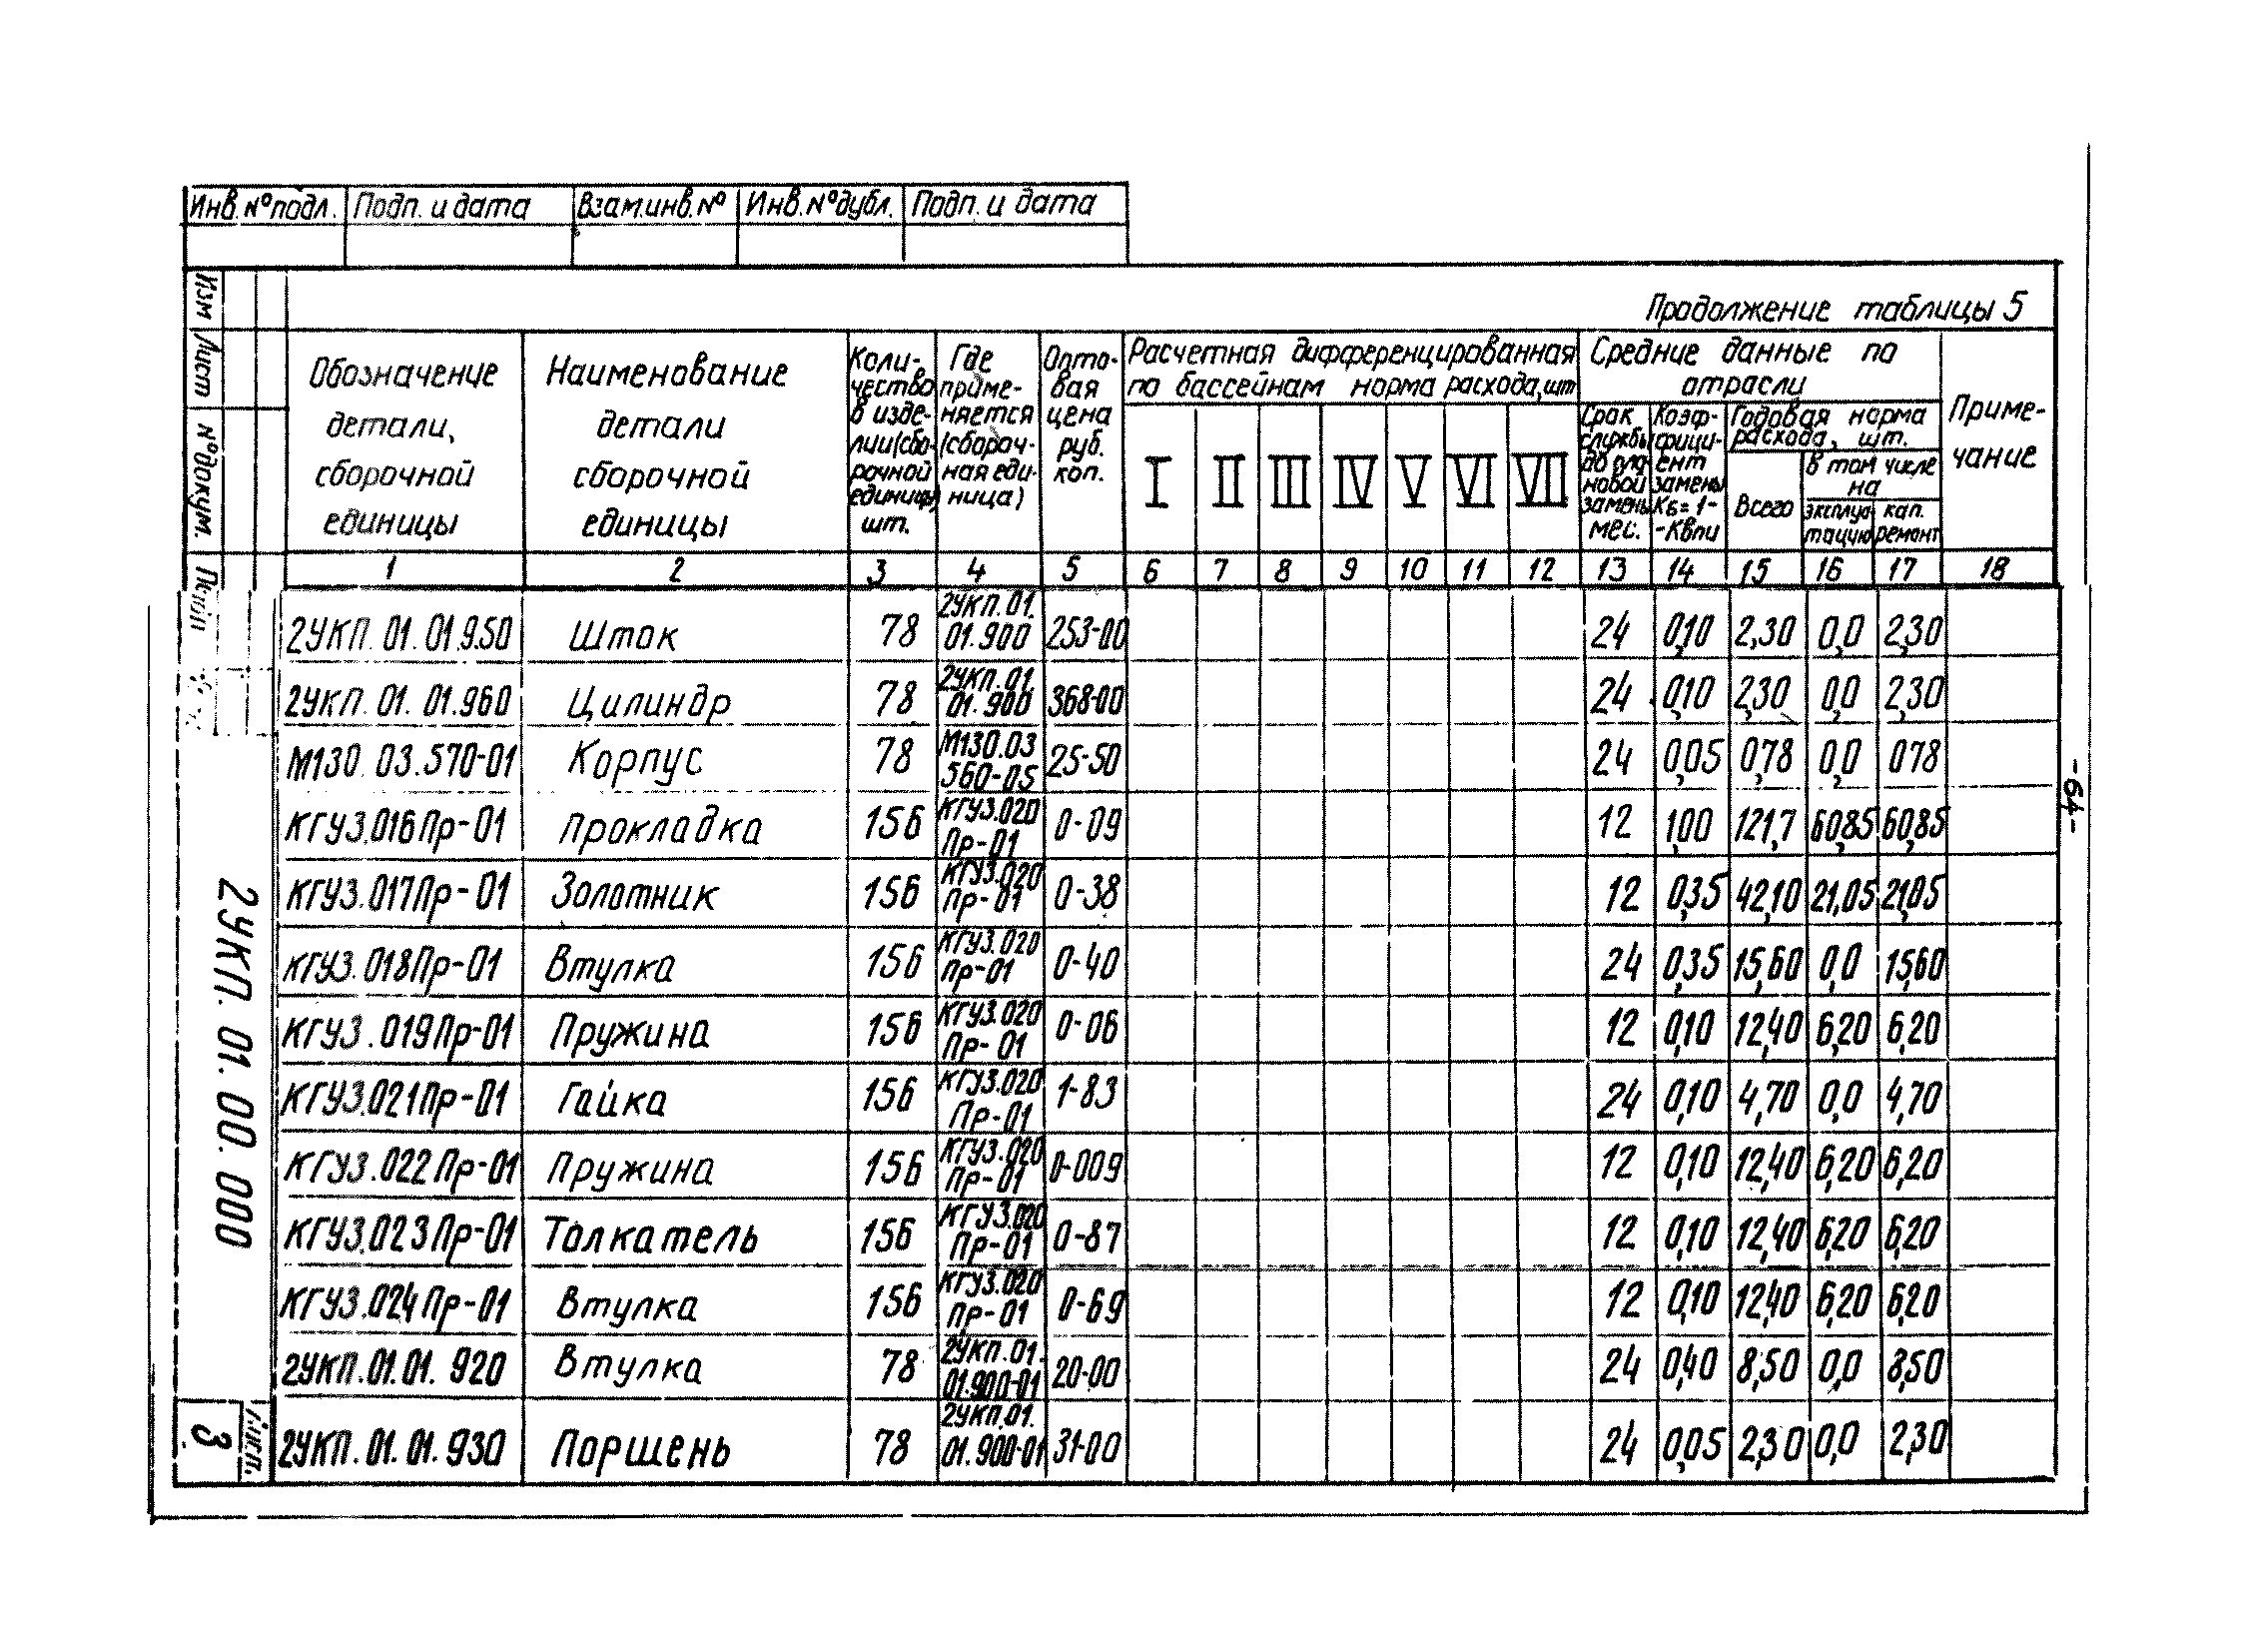 Инв.№подл. Подп. и дата Взам.инв.№ Инв.№дубл. Подп. и дата
Изм Лист №докум.
Продолжение таблицы 5
Обозначение детали, сборочной единицы
Наименование детали сборочной единицы
Коли-чество в изде-лии(сбо-рочной единицы) шт.
Где приме-няется (сбороч-ная еди-ница)
Опто-вая цена руб. коп.
Расчетная дифференцированная по бассейнам норма расхода,шт
I II III IV V VI VII
Средние данные по отрасли
Срак службы до пла-новой замены мес.
Коэф-фици-ент замены Кб=1--Квпи
Годовая норма расхода, шт.
Всего
в том числе на
эксплуа-тацию
кап. ремонт
Приме-чание
1 2 3 4 5 6 7 8 9 10 11 12 13 14 15 16 17 18
2УКП.01.01.950 Шток 78 2УКП.01.01.900 253-00 24 0,10 2,30 0,0 2,30
2УКП.01.01.960 Цилиндр 78 2УКП.01.01.900 368-00 24 0,10 2,30 0,0 2,30
М130.03.570-01 Корпус 78 М130.03 560-05 25-50 24 0,05 0,78 0,0 078
КГУ3.016Пр-01 Прокладка 156 КГУ3.020 Пр-01 0-09 12 1,00 121,7 60,85 60,85
КГУ3.017Пр-01 Золотник 156 КГУ3.020 Пр-01 0-38 12 0,35 42,10 21,05 21,05
КГУ3.018Пр-01 Втулка 156 КГУ3.020 Пр-01 0-40 24 0,35 15,60 0,0 15,60
КГУ3.019Пр-01 Пружина 156 КГУ3.020 Пр-01 0-06 12 0,10 12,40 6,20 6,20
КГУ3.021Пр-01 Гайка 156 КГУ3.020 Пр-01 1-83 24 0,10 4,70 0,0 4,70
КГУ3.022Пр-01 Пружина 156 КГУ3.020 Пр-01 0-009 12 0,10 12,40 6,20 6,20
КГУ3.023Пр-01 Толкатель 156 КГУ3.020 Пр-01 0-87 12 0,10 12,40 6,20 6,20
КГУ3.024Пр-01 Втулка 156 КГУ3.020 Пр-01 0-69 12 0,10 12,40 6,20 6,20
2УКП.01.01.920 Втулка 78 2УКП.01.01.900-01 20-00 24 0,40 8,50 0,0 8,50
2УКП.01.01.930 Поршень 78 2УКП.01.01.900-01 31-00 24 0,05 2,30 0,0 2,30
2УКП.01.00.000
3
-64-